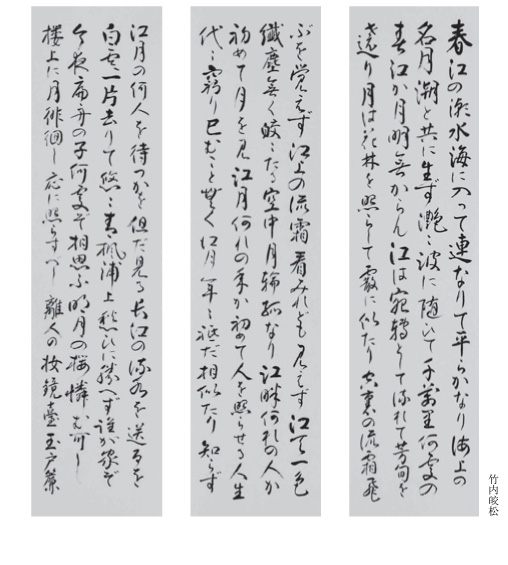 春江の潮水海に入って連なりて平らかなり海上の
名月潮と共に生ず灔〻波に随ひて千萬里何處の
春江か月明無からん江は宛轉として流れて芳甸を
遶り月は花林を照らして霰に似たり空裏の流霜飛
ぶを覚えず江上の流霜看みれども見えず江天一色
纖塵無く皎〻たる空中月輪孤なり江畔何れの人か
初めて月を見江月何れの年か初めて人を照らせる人生
代〻窮り已むこと無く江月年〻祗だ相似たり知らず
江月の何人を待つかを但だ見る長江の流水を送るを
白雲一片去りて悠〻青楓浦上愁ひに勝へず誰が家ぞ
今夜扁舟の子何處ぞ相思ふ明月の樓憐む可し
樓上に月徘徊し応に照らすべし離人の妝鏡臺玉戸簾
竹内皎松